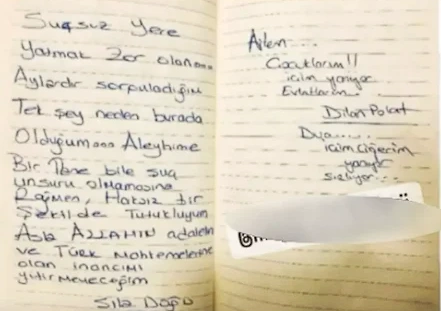 Suçsuz Yere
Yatmak Zor olan ama
Aylardır sorguladığım
Tek şey neden burada
Olduğum ama Aleyhime
Bir Tane bile suç
unsuru olmamasına
Rağmen, Haksız bir
Şekilde Tutukluyum
Asla ALLAHIN adaletine
ve Türk mahkemelerine
olan inancımı
yitirmeyeceğim
Sıla Doğu
Ailem...
Çocuklarım!!
içim yanıyor
Evlatlarım...
Dilan Polat
Dua.....
içim Ciğerim
yanıyor
sızlıyor...